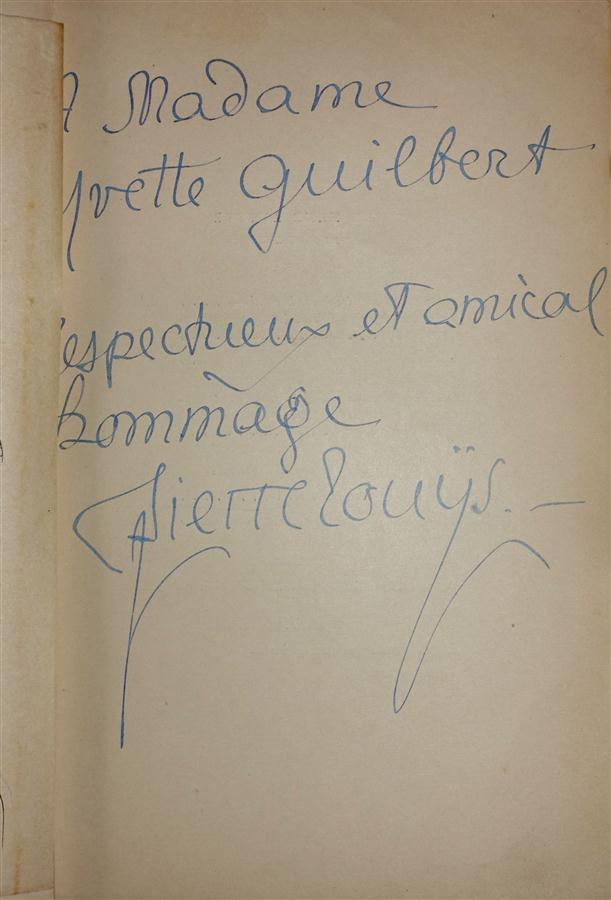 A Madame
Yvette Guilbert
respectueux et amical
hommage
Pierre Louÿs. –